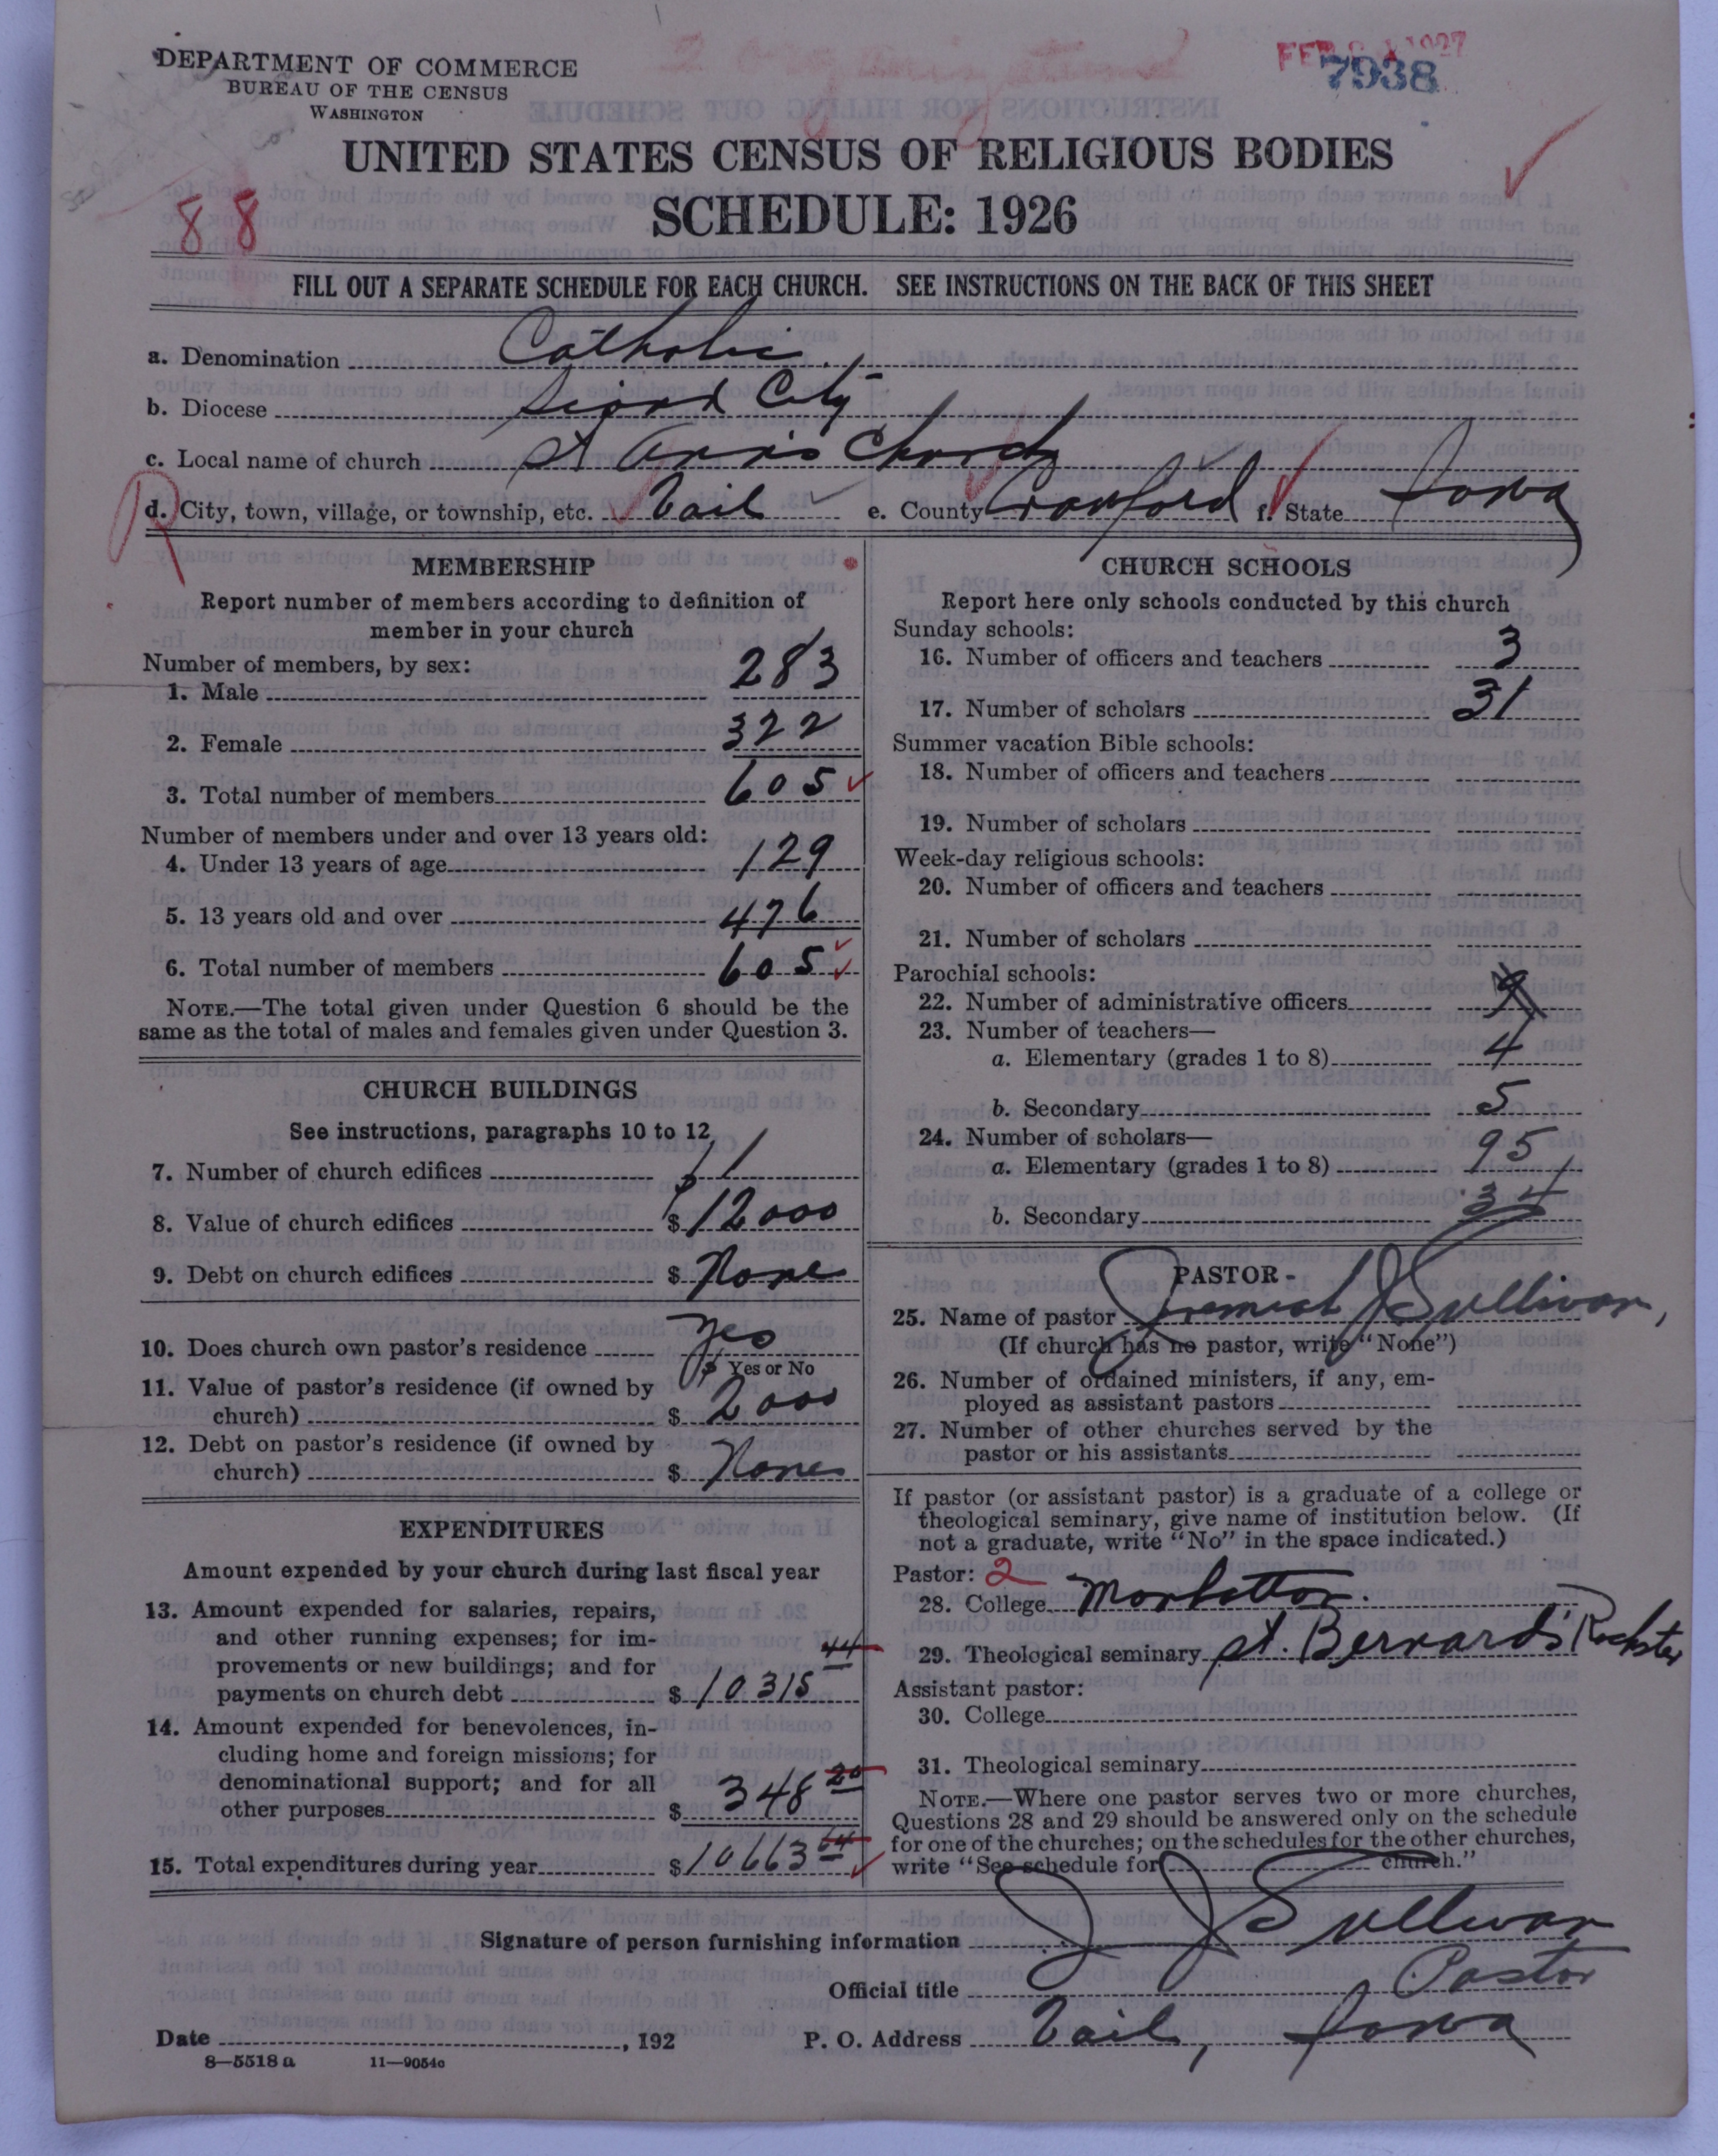 DEPARTMENT OF COMMERCE
BUREAU OF THE CENSUS
WASHINGTON
7938
UNITED STATES CENSUS OF RELIGIOUS BODIES
SCHEDULE: 1926
88
FILL OUT A SEPARATE SCHEDULE FOR EACH CHURCH. SEE INSTRUCTIONS ON THE BACK OF THIS SHEET
a. Denomination Catholic
b. Diocese Sioux City
c. Local name of church St Ann's Church
d. City, town, village, or township, etc. Vail e. County Crawford f. State Iowa
MEMBERSHIP
Report number of members according to definition of
member in your church
Number of members, by sex:
1. Male 283
2. Female 322
3. Total number of members 605
Number of members under and over 13 years old:
4. Under 13 years of age 129
5. 13 years old and over 476
6. Total number of members 605
NOTE.—The total given under Question 6 should be the
same as the total of males and females given under Question 3.
CHURCH BUILDINGS
See instructions, paragraphs 10 to 12
7. Number of church edifices 1
8. Value of church edifices $ 12000
9. Debt on church edifices $ None
10. Does church own pastor's residence Yes
Yes or No
11. Value of pastor's residence (if owned by
church) $ 2000
12. Debt on pastor's residence (if owned by
church) $ None
EXPENDITURES
Amount expended by your church during last fiscal year
13. Amount expended for salaries, repairs,
and other running expenses; for im-
provements or new buildings; and for
payments on church debt $ 10315 44
14. Amount expended for benevolences, in-
cluding home and foreign missions; for
denominational support; and for all
other purposes $ 348 20
15. Total expenditures during year $ 10663 64
CHURCH SCHOOLS
Report here only schools conducted by this church
Sunday schools:
16. Number of officers and teachers 3
17. Number of scholars 31
Summer vacation Bible schools:
18. Number of officers and teachers
19. Number of scholars
Week-day religious schools:
20. Number of officers and teachers
21. Number of scholars
Parochial schools:
22. Number of administrative officers
23. Number of teachers—
a. Elementary (grades 1 to 8) 4
b. Secondary 5
24. Number of scholars—
a. Elementary (grades 1 to 8) 95
b. Secondary 34
PASTOR
25. Name of pastor Jeremiah J Sullivan,
(If church has no pastor, write "None")
26. Number of ordained ministers, if any, em-
ployed as assistant pastors
27. Number of other churches served by the
pastor or his assistants
If pastor (or assistant pastor) is a graduate of a college or
theological seminary, give name of institution below. (If
not a graduate, write "No" in the space indicated.)
Pastor: 2
28. College Manhattan.
29. Theological seminary St. Bernard's Rochster
Assistant pastor:
30. College
31. Theological seminary
NOTE.—Where one pastor serves two or more churches,
Questions 28 and 29 should be answered only on the schedule
for one of the churches; on the schedules for the other churches,
write "See schedule for church."
Signature of person furnishing information J J Sullivan
Official title Pastor
Date , 192 P. O. Address Vail, Iowa
8—5518 a 11—9054c